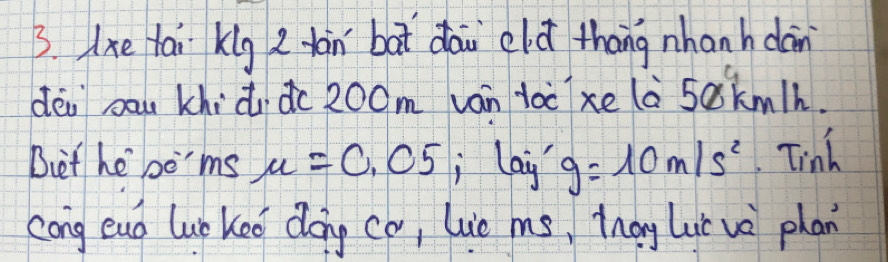 3. 1 xe tải klg 2 tấn bắt đầu cđ thẳng nhanh dần
đều sau khi đi đc 200m vận tốc xe là 54km/h.
Biết hệ số ms μ = 0,05; lấy g = 10m/s². Tính
công của lực kéo động cơ, lực ms, trọng lực và phản